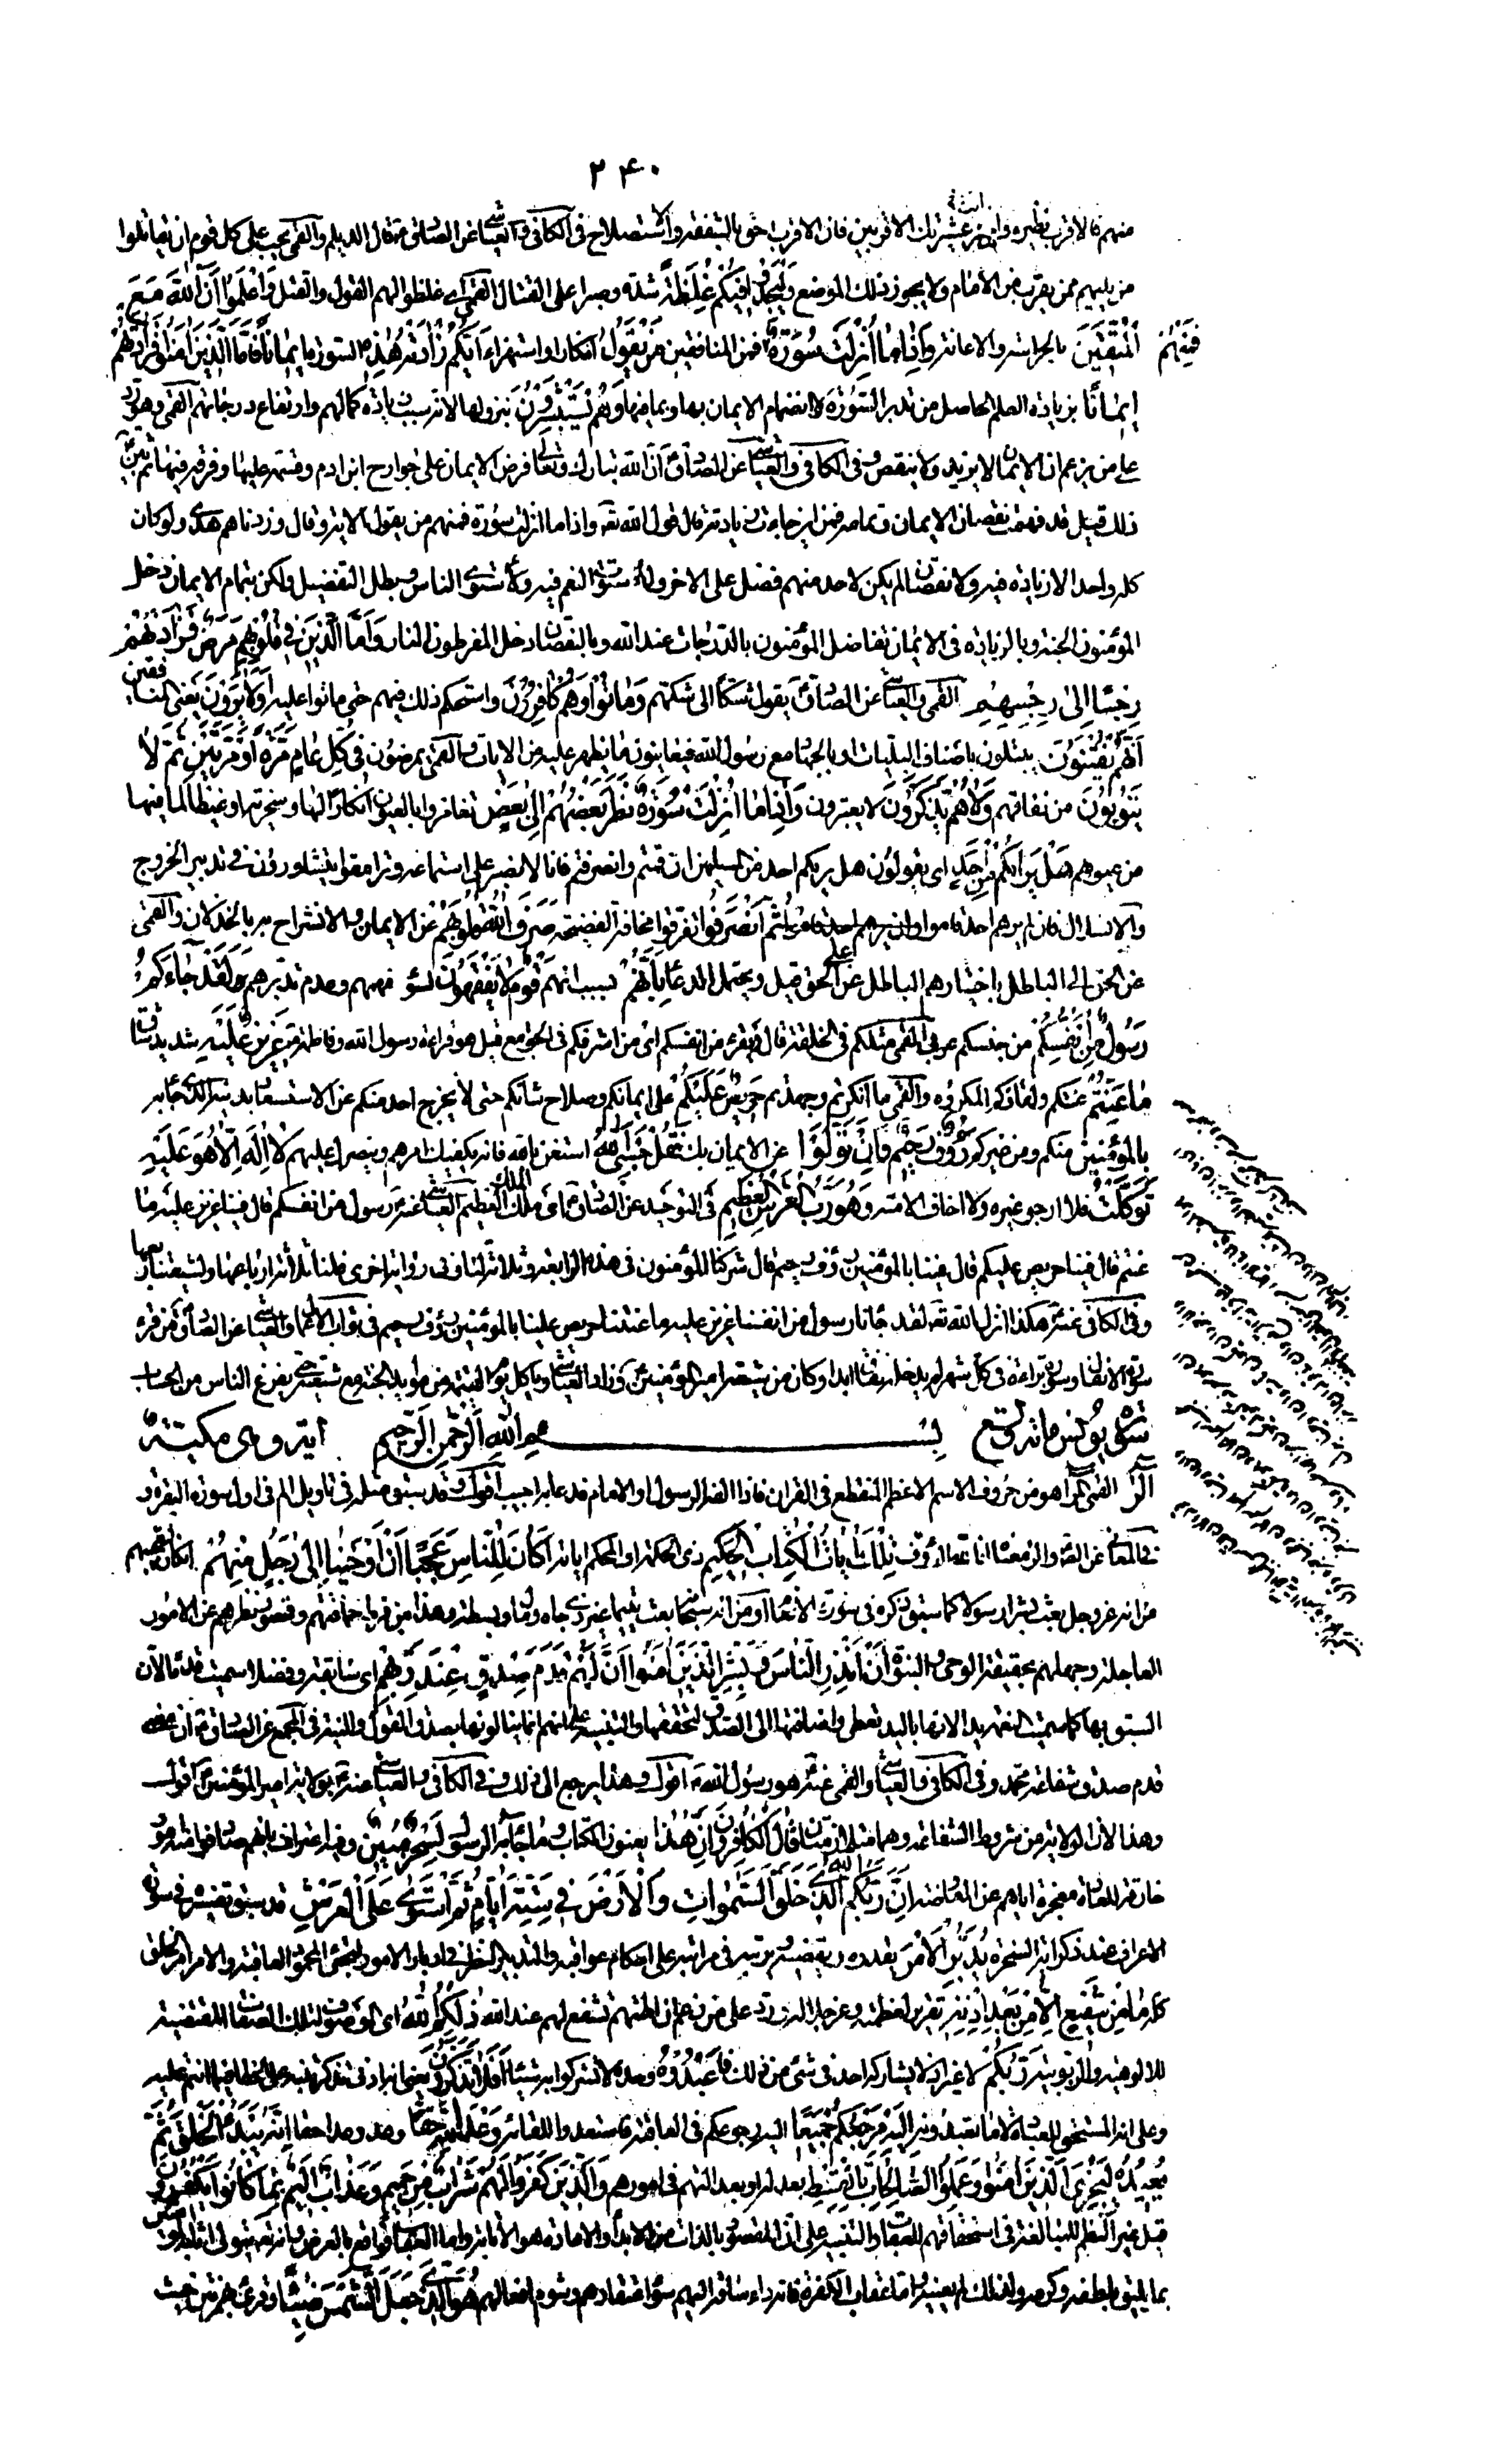 ۲۴۰
منهم فالاقرب نظيره وانذر عشيرتك الاقربين فان الاقرب احق بالشفقه والاستصلاح فى الكافى والعياشى عن الصادق قال الديلم والقمى يجب على كل قوم ان يقاتلوا
من يليهم ممن يقرب من الامام ولا يجوز ذلك الموضع وَلْيَجِدُوا فِيكُمْ غِلْظَةً شدة وصبرا على القتال القمى اى غلظوا لهم القول والقتل وَاعْلَمُوا أَنَّ اللّٰهَ مَعَ
الْمُتَّقِينَ بالحراسة والاعانة وَإِذٰا مٰا أُنْزِلَتْ سُورَةٌ فَمِنْهُمْ فمن المنافقين مَنْ يَقُولُ انكارا واستهزاء أَيُّكُمْ زٰادَتْهُ هٰذِهِ السورة إِيمٰاناً فَأَمَّا الَّذِينَ آمَنُوا فَزٰادَتْهُمْ
إِيمٰاناً بزيادة العلم الحاصل من تدبر السورة وانضمام الايمان بها وبما فيها وَهُمْ يَسْتَبْشِرُونَ بنزولها لانه سبب لزيادة كمالهم وارتفاع درجاتهم القمى وهو رد
على من يزعم ان الايمان لا يزيد ولا ينقص وفى الكافى والعياشى عن الصادق ان الله تبارك وتعالى فرض الايمان على جوارح ابن ادم وقسمه عليها وفرقه فيها ثم بين
ذلك قيل قد فهمت نقصان الايمان وتمامه فمن اين جاءت زيادته قال قول الله تعه واذا ما انزلت سورة فمنهم من يقول الاية وقال وزدناهم هدى ولو كان
كله واحدا لا زيادة فيه ولا نقصان لم يكن لاحد منهم فضل على الاخر ولاستوت النعم فيه ولاستوى الناس وبطل التفضيل ولكن بتمام الايمان دخل
المؤمنون الجنة وبالزيادة فى الايمان تفاضل المؤمنون بالدرجات عند الله وبالنقصان دخل المفرطون النار وَأَمَّا الَّذِينَ فِي قُلُوبِهِمْ مَرَضٌ فَزٰادَتْهُمْ
رِجْساً إِلىٰ رِجْسِهِمْ القمى والعياشى عن الصادق يقول شكا الى شكهم وَمٰاتُوا وَهُمْ كٰافِرُونَ واستحكم ذلك فيهم حتى ماتوا عليه أَوَلاٰ يَرَوْنَ يعنى المنافقين
أَنَّهُمْ يُفْتَنُونَ يبتلون باصناف البليات او بالجهاد مع رسول الله فيعاينون ما يظهر عليه من الايات والقمى يمرضون فِي كُلِّ عٰامٍ مَرَّةً أَوْ مَرَّتَيْنِ ثُمَّ لاٰ
يَتُوبُونَ من نفاقهم وَلاٰ هُمْ يَذَّكَّرُونَ لا يعتبرون وَإِذٰا مٰا أُنْزِلَتْ سُورَةٌ نَظَرَ بَعْضُهُمْ إِلىٰ بَعْضٍ تغامزوا بالعيون انكارا لها وسخرية او غيظا لما فيها
من عيوبهم هَلْ يَرٰاكُمْ مِنْ أَحَدٍ اى يقولون هل يريكم احد من المسلمين ان قمتم وانصرفتم فانا لا نصبر على استماعه وترامقوا يتشاورون فى تدبير الخروج
والانسلال فان لم يرهم احد قاموا وان يرهم احد اقاموا ثُمَّ انْصَرَفُوا تفرقوا مخافة الفضيحة صَرَفَ اللّٰهُ قُلُوبَهُمْ عن الايمان والانشراح به بالخذلان والقمى
عن الحق الى الباطل باختيارهم الباطل على الحق قيل ويحتمل الدعاء بِأَنَّهُمْ بسبب انهم قَوْمٌ لاٰ يَفْقَهُونَ لسوء فهمهم وعدم تدبرهم لَقَدْ جٰاءَكُمْ
رَسُولٌ مِنْ أَنْفُسِكُمْ من جنسكم عربى القمى مثلكم فى الخلقة قال ويقرء من انفسكم اى من اشرفكم فى الجوامع قيل هو قراءة رسول الله وفاطمة عَزِيزٌ عَلَيْهِ شديد شاق
مٰا عَنِتُّمْ عنتكم ولقاؤكم المكروه والقمى ما انكرتم وجحدتم حَرِيصٌ عَلَيْكُمْ على ايمانكم وصلاح شانكم حتى لا يخرج احد منكم عن الاستسعاد بدينه الذى جاء به
بِالْمُؤْمِنِينَ منكم ومن غيركم رَؤُفٌ رَحِيمٌ فَإِنْ تَوَلَّوْا عن الايمان بك فَقُلْ حَسْبِيَ اللّٰهُ استعن بالله فانه يكفيك امرهم وينصرك عليهم لاٰ إِلٰهَ إِلاّٰ هُوَ عَلَيْهِ
تَوَكَّلْتُ فلا ارجو غيره ولا اخاف الا منه وَهُوَ رَبُّ الْعَرْشِ الْعَظِيمِ فى التوحيد عن الصادق اى ملك الملك العظيم العياشى عنه رسول من انفسكم قال فينا عزيز عليه ما
عنتم قال فينا حريص عليكم قال فينا بالمؤمنين رؤف رحيم قال شركنا المؤمنون فى هذه الرابعة وثلاثة لنا وفى رواية اخرى فلنا ثلاثة ارباعها ولشيعتنا ربعها
وفى الكافى عنه هكذا انزل الله تعه لقد جاءنا رسول من انفسنا عزيز عليه ما عنتنا حريص علينا بالمؤمنين رؤف رحيم فى ثواب الاعمال والعياشى عن الصادق من قرء
سورة الانفال وسورة براءة فى كل شهر لم يدخله نفاق ابدا وكان من شيعة امير المؤمنين وزاد العياشى وياكل يوم القيمة من موايد الجنة مع شيعته حتى يفرغ الناس من الحساب
سورة يونس مائة وتسع بِسْمِ اللّٰهِ الرَّحْمٰنِ الرَّحِيمِ اية وهى مكية
الر القمى الر هو من حروف الاسم الاعظم المنقطع فى القران فاذا الفه الرسول او الامام فدعا به اجيب اقول وقد سبق مثله فى تاويل الم فى اول سورة البقرة و
فى المعانى عن الصادق والر معناه انا الله الرؤف تِلْكَ آيٰاتُ الْكِتٰابِ الْحَكِيمِ ذى الحكمة او المحكم اياته أَكٰانَ لِلنّٰاسِ عَجَباً أَنْ أَوْحَيْنٰا إِلىٰ رَجُلٍ مِنْهُمْ انكار لتعجبهم
من انه عز وجل بعث بشرا رسولا كما سبق ذكره فى سورة الانعام او من انه سبحانه بعث يتيما غير ذى جاه ومال وبسطة وهذا من فرط حماقتهم وقصور نظرهم عن الامور
العاجلة وجهلهم بحقيقة الوحى والنبوة أَنْ أَنْذِرِ النّٰاسَ وَبَشِّرِ الَّذِينَ آمَنُوا أَنَّ لَهُمْ قَدَمَ صِدْقٍ عِنْدَ رَبِّهِمْ اى سابقة وفضلا سميت قدما لان
السبق بها كما سميت النعمة يدا لانها باليد تعطى واضافتها الى الصدق لتحققها والتنبيه على انهم انما ينالونها بصدق القول والنية فى المجمع عن الصادق ان معنى
قدم صدق شفاعة محمد وفى الكافى والعياشى والقمى عنه هو رسول الله اقول وهذا يرجع الى ذلك وفى الكافى والعياشى عنه بولاية امير المؤمنين اقول
وهذا لان الولاية من شروط الشفاعة وهما متلازمتان قٰالَ الْكٰافِرُونَ إِنَّ هٰذٰا يعنون الكتاب وما جاء به الرسول لَسِحْرٌ مُبِينٌ وفيه اعتراف بانهم صادفوا منه امورا
خارقة للعادة معجزة اياهم عن المعارضة إِنَّ رَبَّكُمُ اللّٰهُ الَّذِي خَلَقَ السَّمٰوٰاتِ وَالْأَرْضَ فِي سِتَّةِ أَيّٰامٍ ثُمَّ اسْتَوىٰ عَلَى الْعَرْشِ قد سبق تفسيره فى سورة
الاعراف عند ذكر اية السخرة يُدَبِّرُ الْأَمْرَ يقدره ويقضيه ويرتبه فى مراتبه على احكام عواقبه والتدبير النظر فى ادبار الامور لتجئ محمودة العاقبة والامر امر الخلق
كله مٰا مِنْ شَفِيعٍ إِلاّٰ مِنْ بَعْدِ إِذْنِهِ تقرير لعظمته وعز جلاله ورد على من زعم ان الهتهم تشفع لهم عند الله ذٰلِكُمُ اللّٰهُ اى الموصوف بتلك الصفات المقتضية
للالوهية والربوبية رَبُّكُمْ لا غير اذ لا يشاركه احد فى شئ من ذلك فَاعْبُدُوهُ وحده لا تشركوا به شيئا أَفَلاٰ تَذَكَّرُونَ يعنى انه ادنى تذكر ينبه على الخطا فيما انتم عليه
وعلى انه المستحق للعبادة لا ما تعبدونه إِلَيْهِ مَرْجِعُكُمْ جَمِيعاً اليه رجوعكم فى العاقبة فاستعدوا للقائه وَعْدَ اللّٰهِ حَقًّا وعد وعدا حقا إِنَّهُ يَبْدَؤُا الْخَلْقَ ثُمَّ
يُعِيدُهُ لِيَجْزِيَ الَّذِينَ آمَنُوا وَعَمِلُوا الصّٰالِحٰاتِ بِالْقِسْطِ بعدله او بعدالتهم فى امورهم وَالَّذِينَ كَفَرُوا لَهُمْ شَرٰابٌ مِنْ حَمِيمٍ وَعَذٰابٌ أَلِيمٌ بِمٰا كٰانُوا يَكْفُرُونَ
قيل غير النظم للمبالغة فى استحقاقهم للعقاب والتنبيه على ان المقصود بالذات من الابداء والاعادة هو الاثابة واما العقاب فواقع بالعرض وانه تعه يتولى اثابة المؤمنين
بما يليق بلطفه وكرمه ولذلك لم يعينه واما عقاب الكفرة فانه داء ساقه اليهم سوء اعتقادهم وشوم افعالهم هُوَ الَّذِي جَعَلَ الشَّمْسَ ضِيٰاءً وقرئ بهمزتين حيث